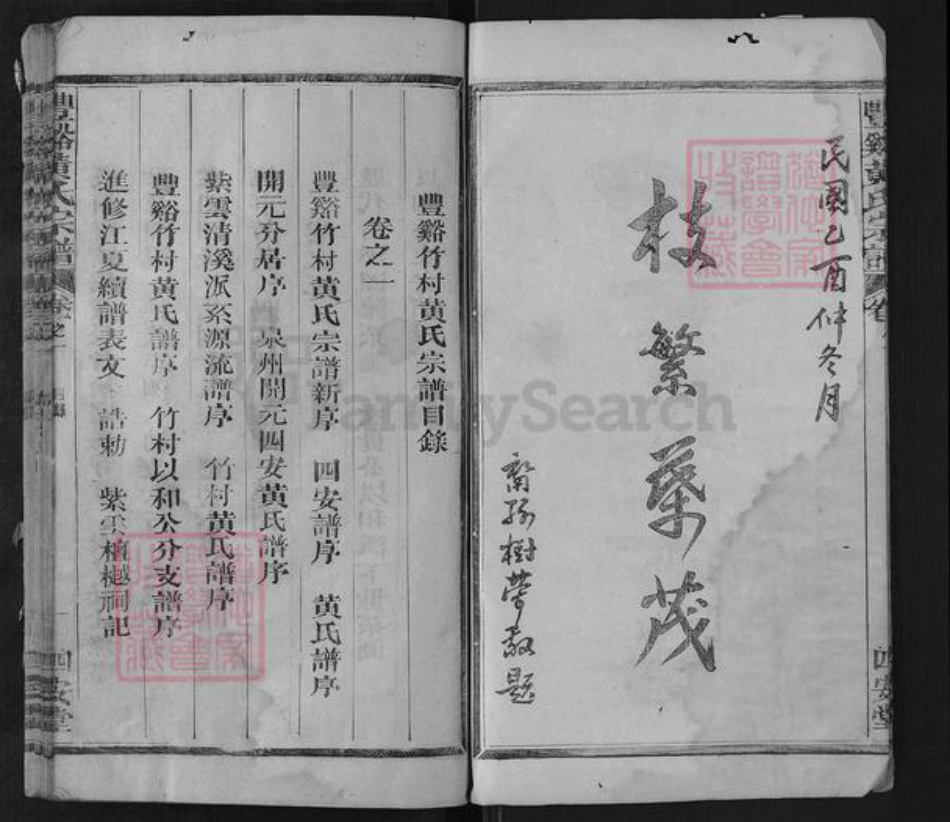 民國乙酉仲冬月
枝繁葉茂
裔孫樹營敬題
豐谿黃氏宗譜
卷
四安堂
豐谿竹村黃氏宗譜目錄
卷之一
豐谿竹村黃氏宗譜新序 四安譜序 黃氏譜序
開元分居序 泉州開元四安黃氏譜序
紫雲清溪派系源流譜序 竹村黃氏譜序
豐谿竹村黃氏譜序 竹村以和公分支譜序
進修江夏續譜表文 誥勅 紫雲檀樾祠記
豐谿黃氏宗譜
卷之一
目錄
四安堂
FamilySearch